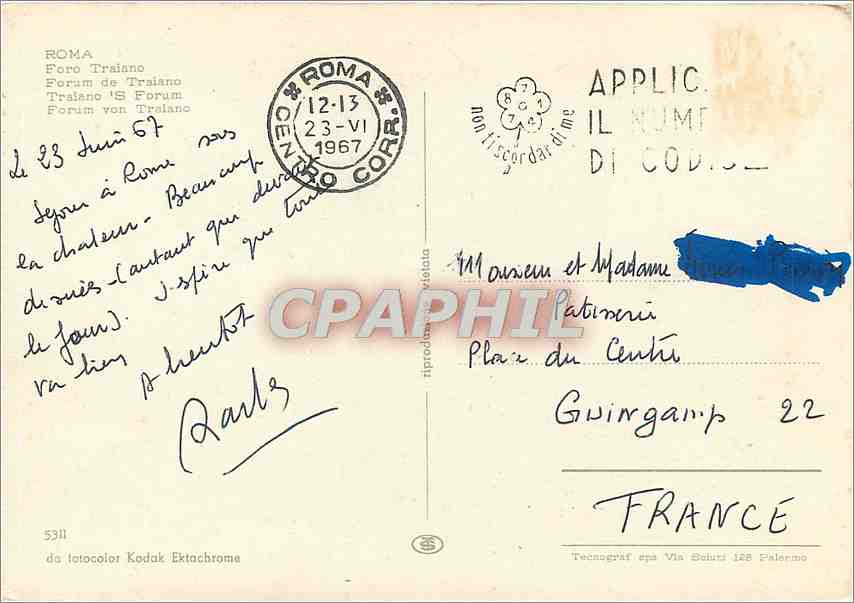 ROMA
Foro Traiano
Forum de Traiano
Traiano 'S Forum
Forum von Traiano
ROMA
CENTRO CORR.
12-13
23-VI
1967
non ti scordar di me
APPLIC
IL NUME
DI CODICE
Le 23 Juin 67
Séjour à Rome sous
la chaleur - Beaucoup
de suées - (autant que devant
le four). J'espère que tout
va bien
A bientot
Monsieur et Madame
Patisserie
Place du Centre
Guingamp 22
FRANCE
CPAPHIL
riproduzione vietata
5311
da fotocolor Kodak Ektachrome
Tecnograf spa Via Scinti 128 Palermo